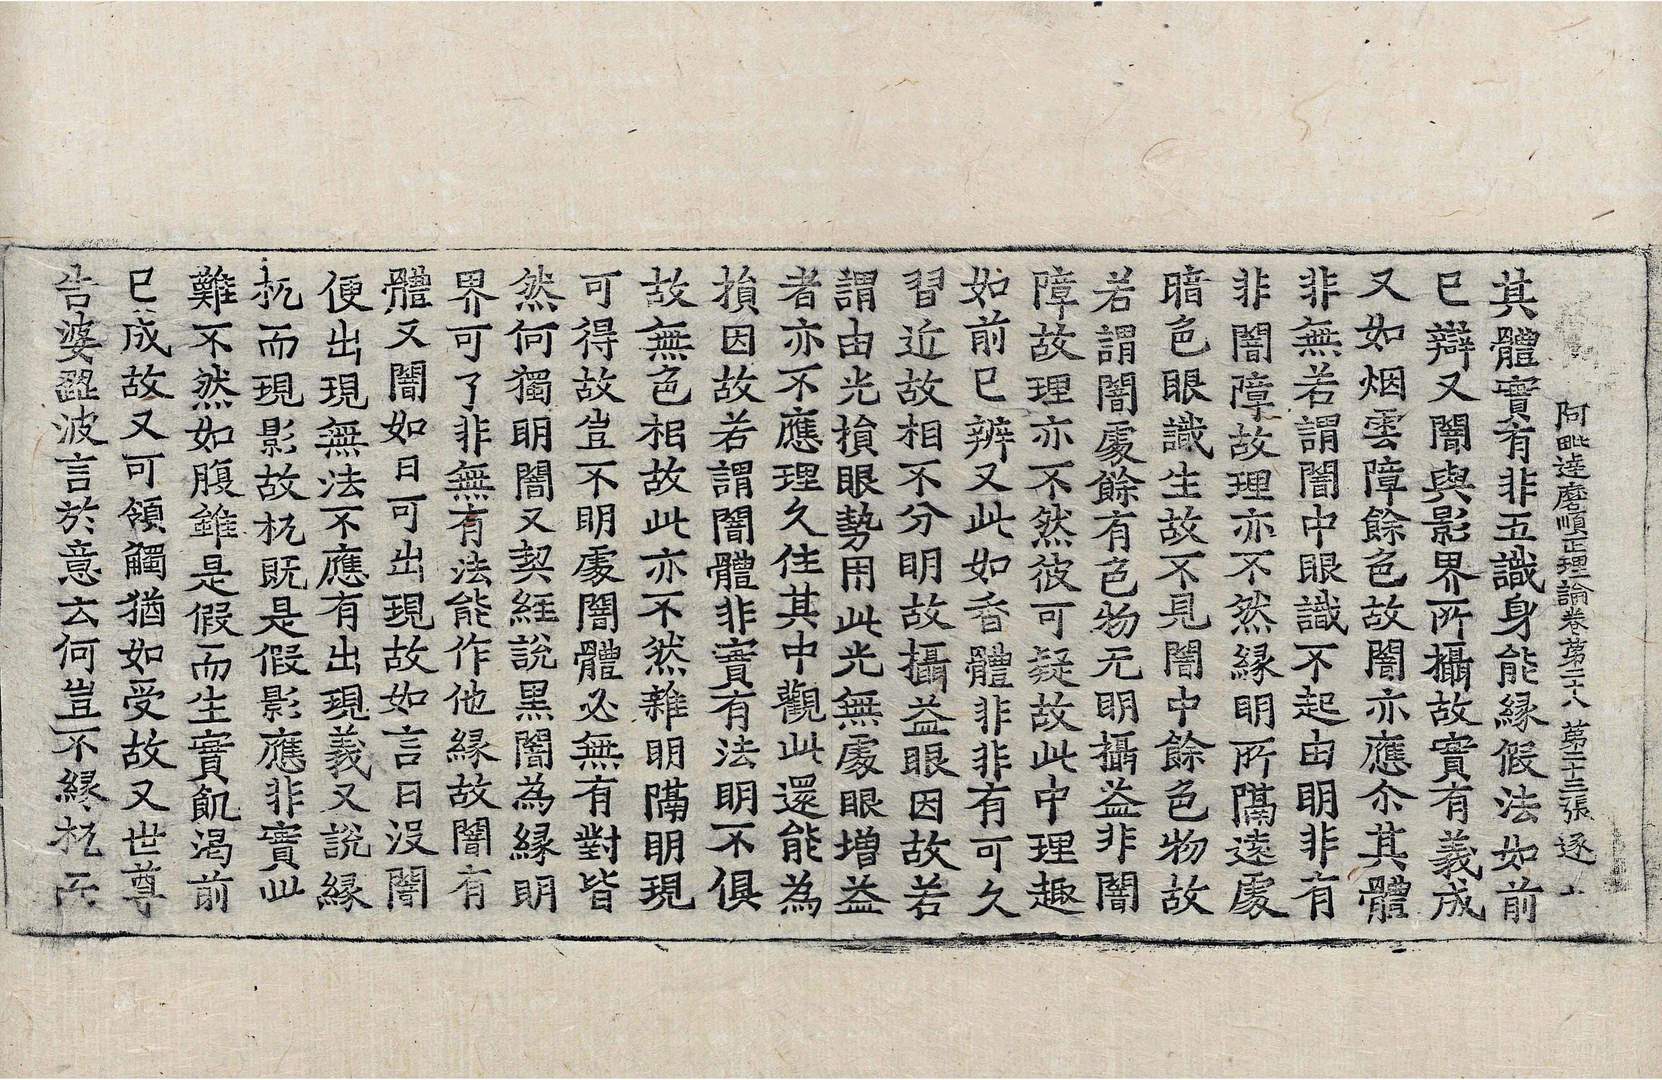 阿毗達磨順正理論卷第二十八 第二十三張 逐
其體實有非五識身能縁假法如前
已辯又闇與影界所攝故實有義成
又如烟雲障餘色故闇亦應尒其體
非無若謂闇中眼識不起由明非有
非闇障故理亦不然縁明所隔遠處
暗色眼識生故不見闇中餘色物故
若謂闇處餘有色物无明攝益非闇
障故理亦不然彼可疑故此中理趣
如前已辨又此如香體非非有可久
習近故相不分明故攝益眼因故若
謂由光損眼勢用此光無處眼增益
者亦不應理久住其中觀此還能為
損因故若謂闇體非實有法明不俱
故無色相故此亦不然雜明隔明現
可得故豈不明處闇體必無有對皆
然何獨明闇又契經說黑闇為縁明
界可了非無有法能作他縁故闇有
體又闇如日可出現故如言日沒闇
便出現無法不應有出現義又說縁
杌而現影故杌既是假影應非實此
難不然如腹雖是假而生實飢渴前
已成故又可領觸猶如受故又世尊
告婆澀波言於意云何豈不縁杌而